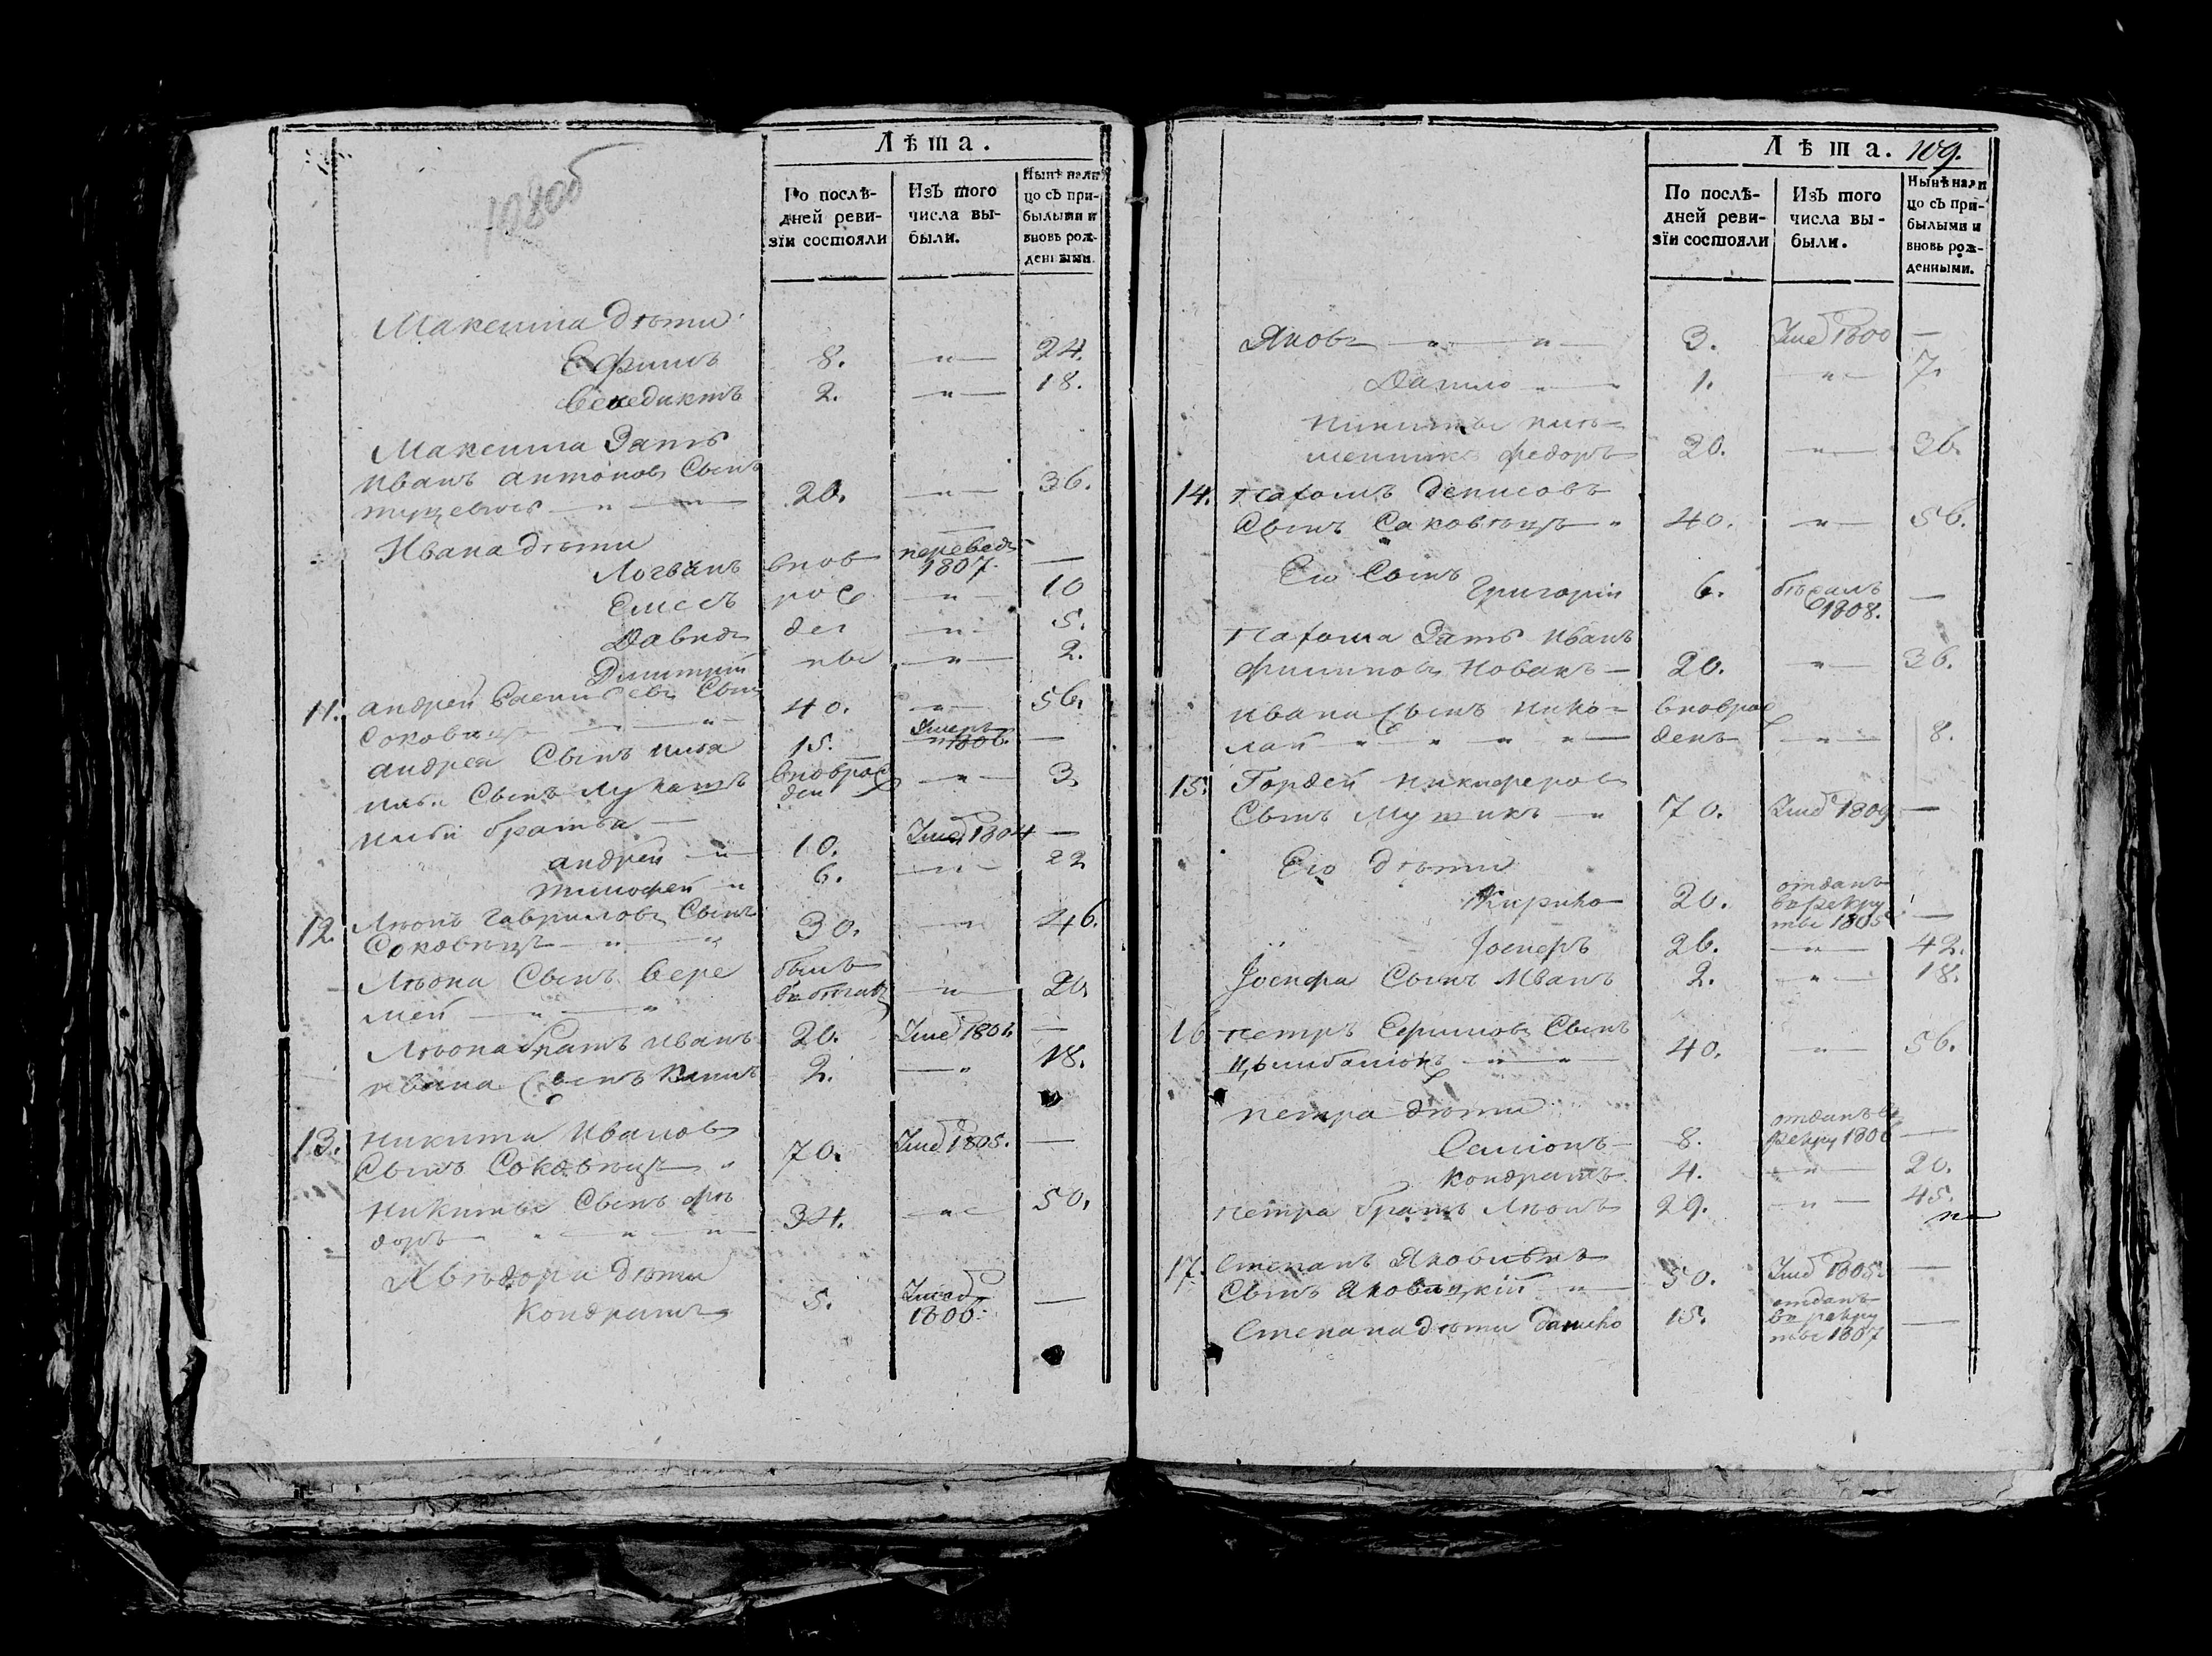 108об
Лѣта.
По послѣ-
дней реви-
зїи состояли
Изъ того
числа вы-
были.
Нынѣ нали
цо съ при-
былыми и
вновь рож-
денными.
Максима дѣти
Ефимъ 8. „ 24.
Венедиктъ 2. „ 18.
Максима Зять
Иванъ Антоновъ Сынъ
20. „ 36.
Ивана дѣти
Логвинъ внов переведъ 1807. —
Елисей рож „ 10
Давидъ ден „ 5.
Димитрій ны „ 2.
11. Андрей Сынъ
40. „ 56.
Андрея Сынъ Илья 15. Умеръ 1806. —
Ильи Сынъ Лукашъ вноврож ден „ 3
Ильи братья —
Андрей „ 10. Умер 1804 —
Тимофей „ 6. „ 22
12. Лѣонъ Гавриловъ Сынъ
Соковѣцъ „ „ 30. „ 46.
Лѣона Сынъ Вере былъ
мей „ „ „ 20.
Лѣона братъ Иванъ 20. Умер 1801. —
Ивана Сынъ 2. „ 18.
13. Никита Ивановъ
Сынъ Соковѣцъ „ 70. Умер 1805. —
Никиты Сынъ Фѣ
доръ „ „ „ 34. „ 50.
дѣти
Кондратъ 5. Умер
1806. —
Лѣта. 109.
По послѣ-
дней реви-
зїи состояли
Изъ того
числа вы-
были.
Нынѣ нали
цо съ при-
былыми и
вновь рож-
денными.
Яковъ „ „ 3. Умер 1800 —
Данило „ 1. „ 7.
Никиты
Федоръ 20. „ 36.
14. Пахомъ Денисовъ
Сынъ Саковѣцъ „ 40. „ 56.
Его Сынъ
Григорій 6. бѣжалъ
1808. —
Пахома Зять Иванъ
Филиповъ Новакъ — 20. „ 36.
Ивана Сынъ Нико= вноврож
лай „ „ „ „ денъ „ 8.
15. Гордей Никифоровъ
Сынъ „ 70. Умер 1809 —
Его дѣти
Кирило 20. отданъ
в рекру
ты 1805 —
Іосифъ 26. „ 42.
Іосифа Сынъ Иванъ 2. „ 18.
16 Петръ Ефимовъ Сынъ
„ „ 40. „ 56.
Петра дѣти
Самюнъ 8. отданъ в
рекру 1806 —
Кондратъ 4. „ 20.
Петра братъ Лѣонъ 29. „ 45.
17. Степанъ
Сынъ Яковицкій „ 50. Умер 1805. —
Степана дѣти Данило 15. отданъ
в рекру
ты 1807 —